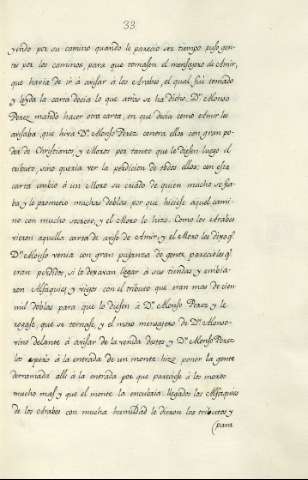 33
yendo por su camino quando le parecio ser tiempo puso gen-
tes por los caminos, para que tomasen el mensagero de Amir,
que havia de ir à avisar à los Arabes, el qual fue tomado
y leyda la carta decia lo que arriva se ha dicho. Dn. Alonso
Perez mandò hacer otra carta, en que decia como Amir les
avisaba, que hiva Dn. Alonso Perez contra ellos con gran po-
der de Christianos y Moros por tanto que le diesen luego el
tributo, sino queria ver la perdicion de todos ellos: con esta
carta embiò à un Moro su criado de quien mucho se fia-
ba y le prometiò muchas doblas por que hiciese aquel cami-
no con mucho secreto, y el Moro lo hizo. Como los Arabes
vieron aquella carta de aviso de Amir, y el Moro les dixo qe.
Dn. Alonso venia con gran pujanza de gente, pareciales qe.
eran perdidos, si le dexavan llegar à sus tiendas y embia-
ron Alfaquies y viejos con el tributo que eran mas de cien
mil doblas para que lo diesen à Dn. Alonso Perez y le
rogase, que se tornase, y el moro mensagero de Dn. Alonso
vino delante à avisar de la venida destos y Dn. Alonso Perez
los esperò à la entrada de un monte: hizo poner la gente
derramada allí à la entrada por que pareciese à los moros
mucho mas y que el monte la encubria: llegados los Alfaquies
de los Arabes con mucha humildad le dieron los tributos y
(para